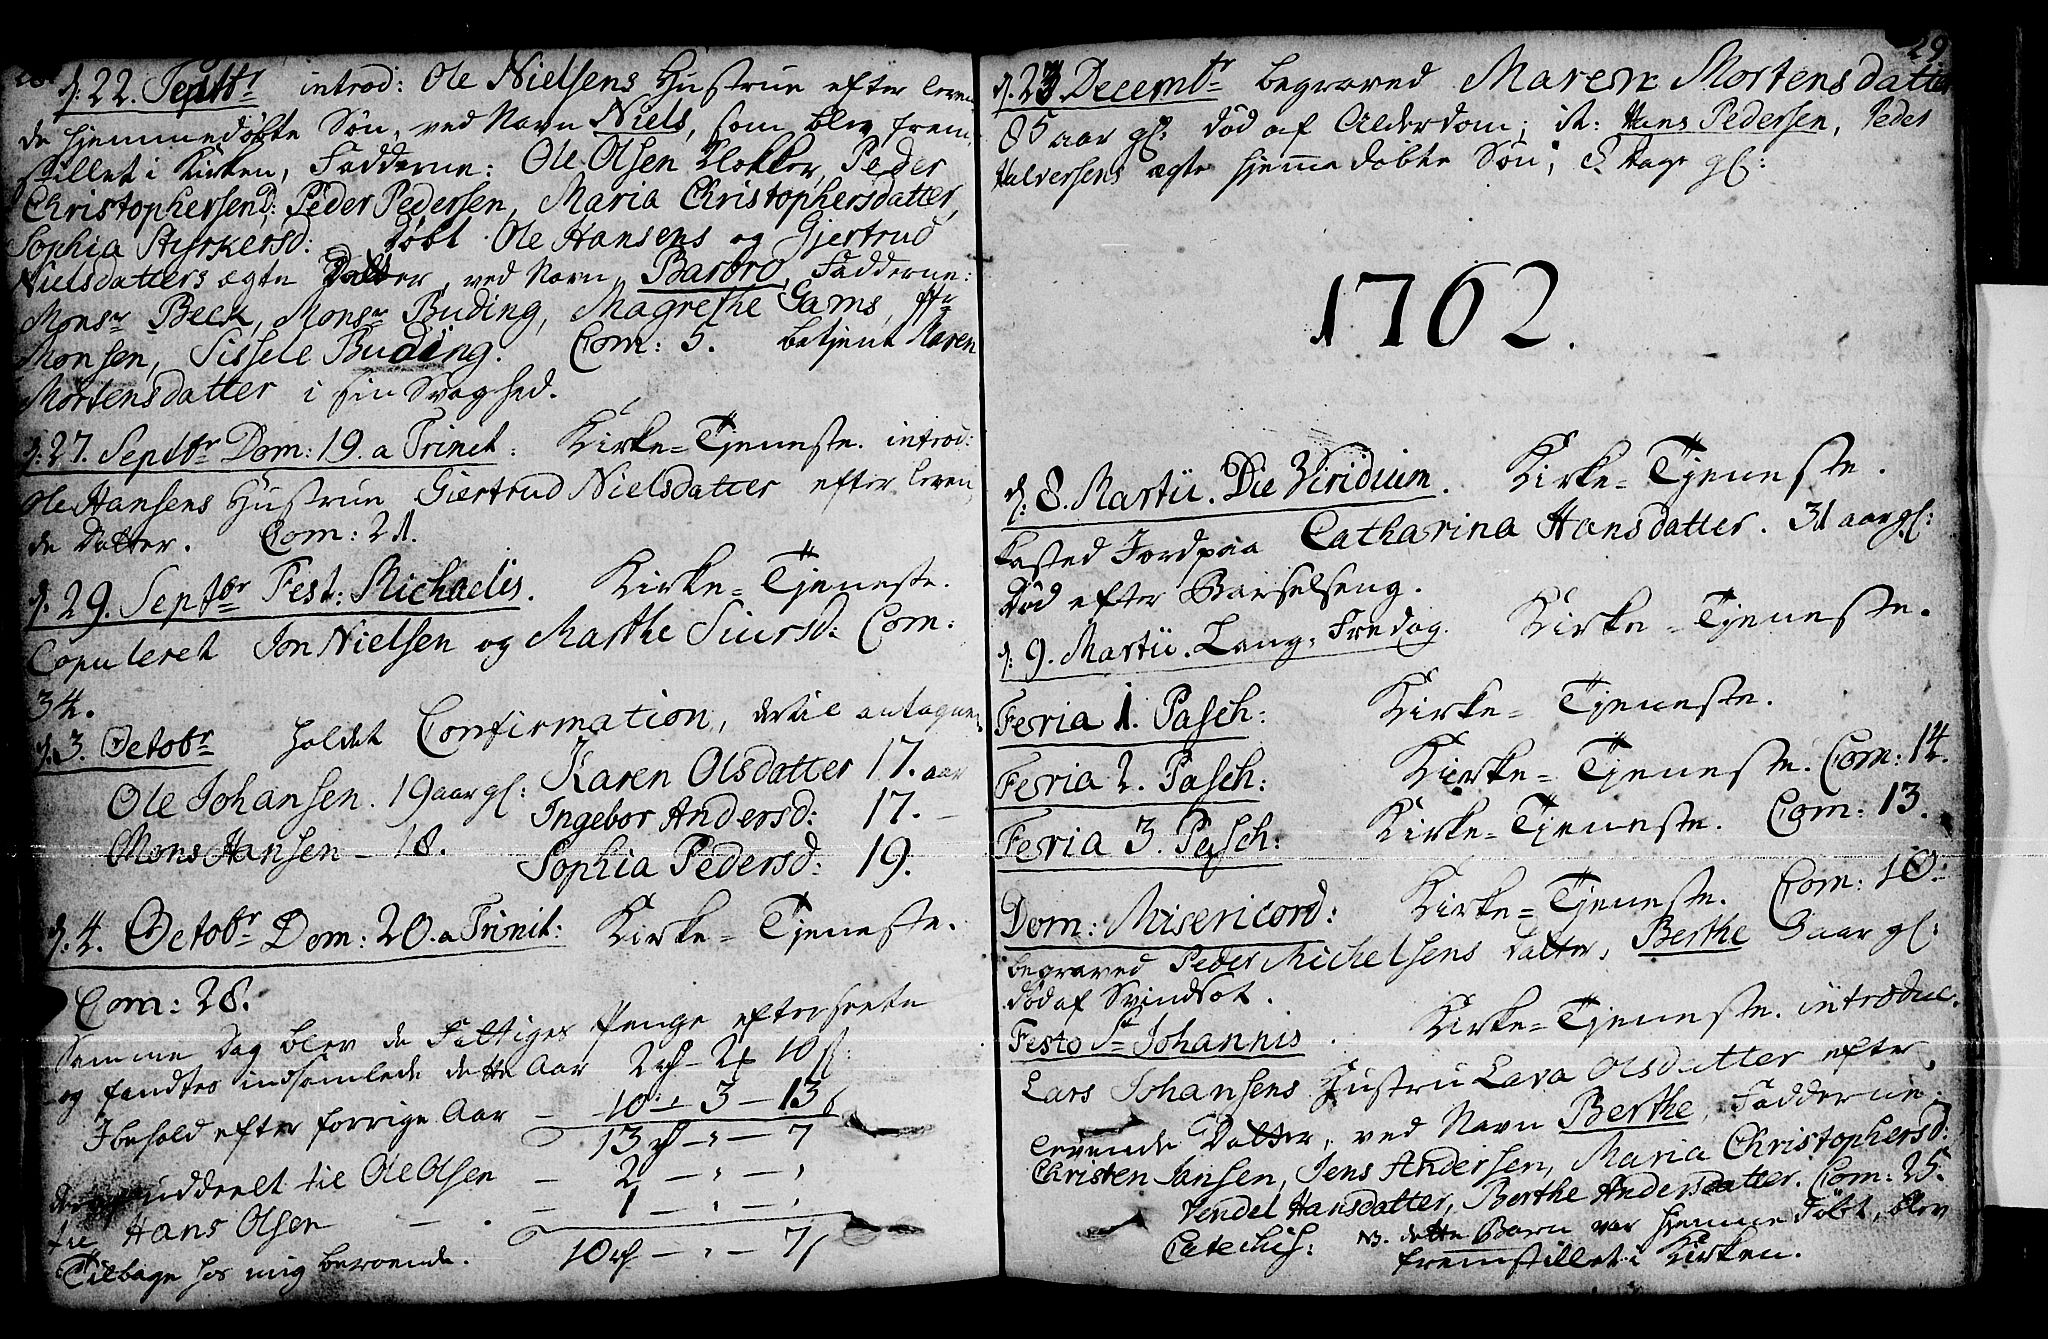 28.
d: 22. Septbr introd: Ole Nielsens Hustrue efter leven
de hjemmedøbte Søn, ved Navn Niels, som blev frem-
stillet i Kirken, Fadderne: Ole Olsen Klokker, Peder
Christophersen D: Peder Pedersen, Maria Christophersdatter,
Sophia Styrkersd: Døbt Ole Hansens og Gjertrud
Nielsdatters ægte Datter, ved Navn Barbro, Fadderne:
Monsr Beck, Monsr Buding, Magrethe Gams,
Monsen, Sissele Buding. Com: 5. betjent Maren
Mortensdatter i sin Svaghed.
d: 27. Septbr Dom: 19. a Trinit: Kirke=Tjeneste. introd:
Ole Hansens Hustrue Giertrud Nielsdatter efter leven,
de Datter. Com: 21.
d: 29. Septbr Fest: Michaelis. Kirke=Tjeneste.
Copuleret Jon Nielsen og Marthe Siursd: Com:
34.
d. 3. Octobr holdet Confirmation, dertil antagne
Ole Johansen. 19 aar gl: Karen Olsdatter 17. aar
Ingebor Andersd: 17. –
Mons Hansen – 18. Sophia Pedersd: 19.
d. 4. Octobr Dom: 20. a Trinit: Kirke=Tjeneste.
Com: 28.
Samme Dag blev de Fattiges Penge efterseete
og fandtes indsamlede dette Aar 2 – 2 10
Ibehold efter forrige Aar – 10 – 3 – 13
13 – " – 7
uddeelt til Ole Olsen – 2 – " – "
til Hans Olsen – 1 – " – "
Tilbage hos mig beroende. 10 – " – 7
29
d. 23 Decembr begraved Maren Mortensdatter
85 aar gl: død af Alderdom; it: Hans Pedersen, Peder
Halversens ægte hjemmedøbte Søn; 8 Dage gl:
1762.
d: 8. Martii. Die Viridium. Kirke=Tjeneste.
kasted Jord paa Catharina Hansdatter. 31 aar gl:
Død efter Barselseng.
d: 9. Martii. Lang=Fredag. Kirke=Tjeneste.
Feria 1. Pasch: Kirke=Tjeneste.
Feria 2. Pasch: Kirke=Tjeneste. Com: 14.
Feria 3. Pasch: Kirke=Tjeneste. Com: 13.
Dom: Misericord: Kirke=Tjeneste. Com: 10.
begraved Peder Michelsens Datter, Berthe 3 aar gl:
død af Svindsot.
Festo St Johannis. Kirke=Tjeneste. introduc.
Lars Johansens Hustru Lava Olsdatter efter
levende Datter, ved Navn Berthe, Fadderne
Christen Jansen, Jens Andersen, Maria Christophersd:
Vendel Hansdatter, Berthe Andersdatter. Com: 25.
Catechis: NB. dette Barn var hjemme Døbt, blev
fremstillet i Kirken.